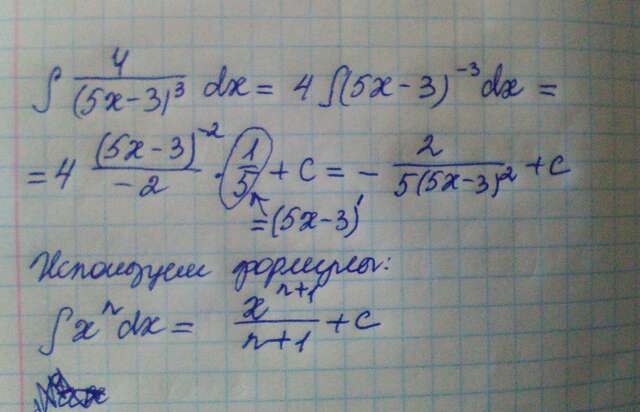 ∫ 4/(5x-3)³ dx = 4 ∫(5x-3)⁻³dx =
= 4 (5x-3)⁻²/-2 · 1/5 + C = - 2/5(5x-3)² + C
= (5x-3)'
Используем формулы:
∫xⁿdx = xⁿ⁺¹/n+1 + C